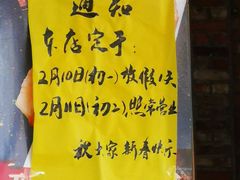 通知
本店定于:
2月10日(初一)放假1天
2月11日(初二)照常营业
祝大家新春快乐